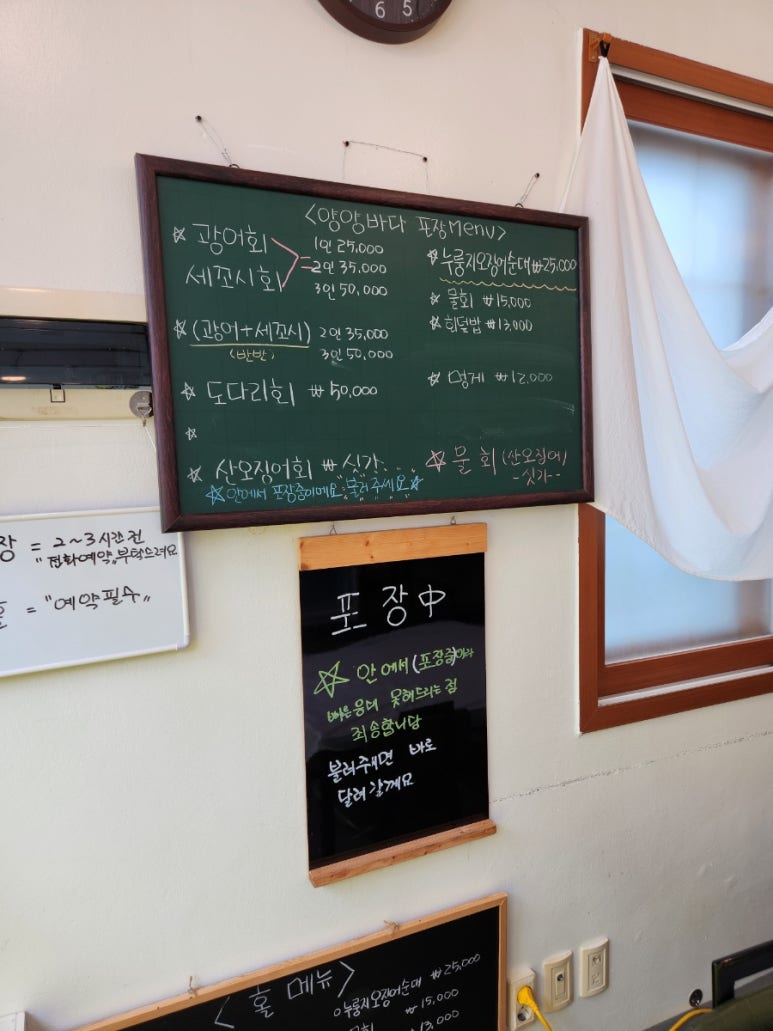 6 5
<양양바다 포장Menu>
☆ 광어회
세꼬시회
1인 25,000
2인 35,000
3인 50,000
☆ (광어+세꼬시)
(반반)
2인 35,000
3인 50,000
☆ 도다리회 ₩50,000
☆
☆ 산오징어회 ₩싯가...
☆안에서 포장중이에요 "불러주세요"☆
☆누룽지오징어순대 ₩25,000
☆ 물회 ₩15,000
☆ 회덮밥 ₩13,000
☆ 멍게 ₩12,000
☆ 물회 (산오징어)
-싯가-
장 = 2~3시간 전
"전화예약" 부탁드려요
= "예약필수"
포장中
☆ 안에서 (포장중)이라
빠른응대 못해드리는 점
죄송합니다
불러주시면 바로
달려 갈께요
<홀 메뉴>
o누룽지오징어순대 ₩25,000
₩15,000
13,000